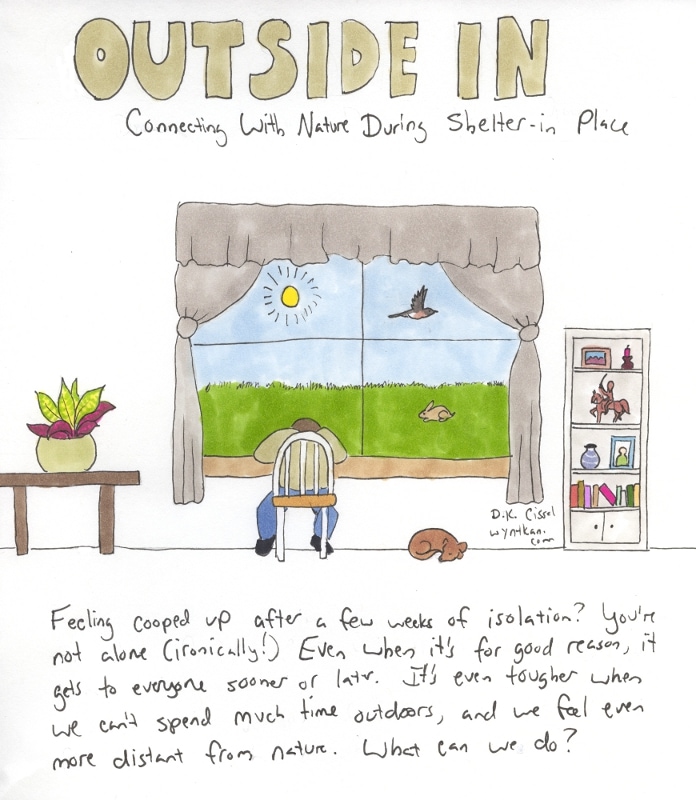 OUTSIDE IN
Connecting With Nature During Shelter-in Place
D.K. Cissel
wyntkan.
com
Feeling cooped up after a few weeks of isolation? You're
not alone (ironically!) Even when it's for good reason, it
gets to everyone sooner or latr. It's even tougher when
we can't spend much time outdoors, and we feel even
more distant from nature. What can we do?